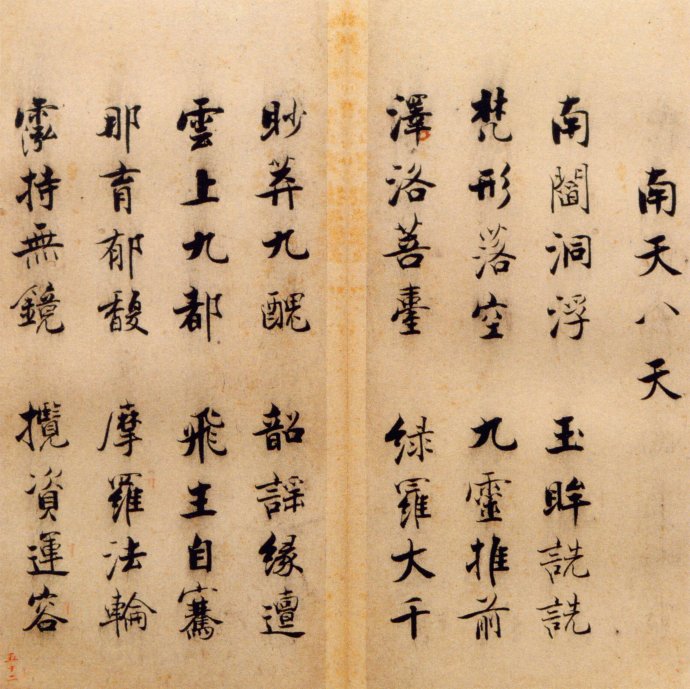 南天八天
南閻洞浮 玉眸詵詵
梵形落空 九靈推前
澤洛菩臺 緑羅大千
眇莽九醜 韶謡縁邅
雲上九都 飛生自騫
那育郁馥 摩羅法輪
霐持無鏡 攬資運容
五十二